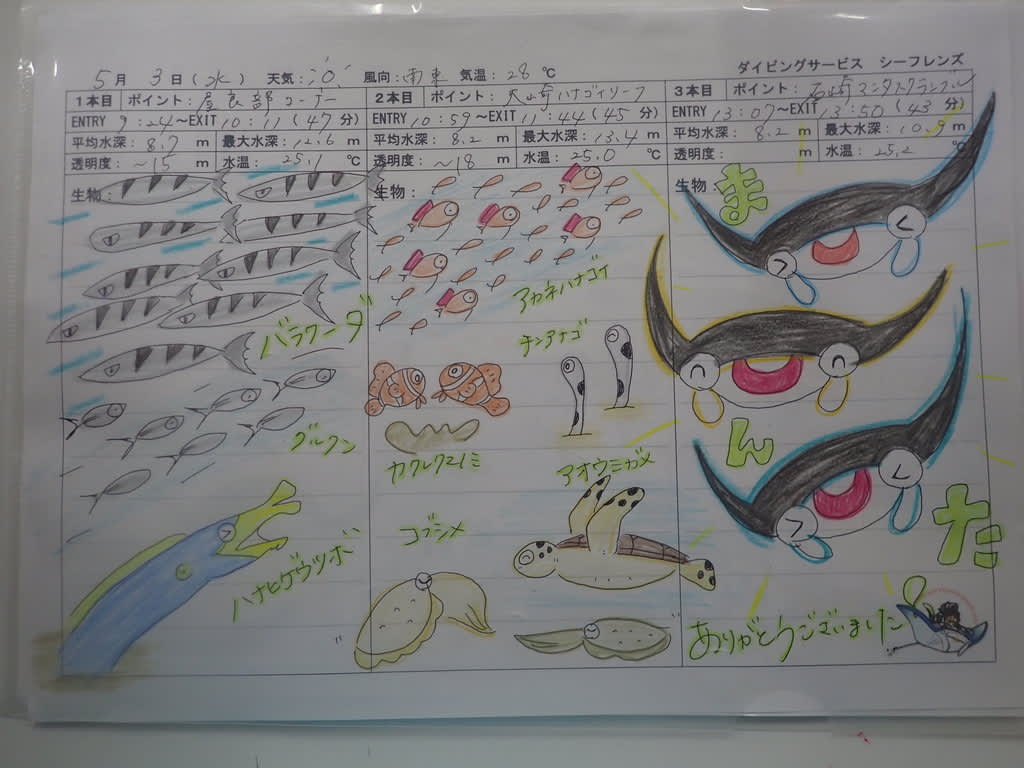 ダイビングサービス シーフレンズ
5月 3日(水) 天気: 風向:南東 気温:28℃
1本目 ポイント:屋良部コーナー
ENTRY 9:24~EXIT 10:11(47分)
平均水深:8.7m 最大水深:12.6m
透明度:~15m 水温:25.1℃
生物:
バラクーダ
グルクン
ハナヒゲウツボ
2本目 ポイント:大崎ハナゴイリーフ
ENTRY 10:59~EXIT 11:44(45分)
平均水深:8.2m 最大水深:13.4m
透明度:~18m 水温:25.0℃
生物:
アカネハナゴイ
チンアナゴ
カクレクマノミ
アオウミガメ
コブシメ
3本目 ポイント:石崎マンタスクランブル
ENTRY 13:07~EXIT 13:50(43分)
平均水深:8.2m 最大水深:10.9m
透明度: m 水温:25.2℃
生物:
ま
ん
た
ありがとうございました